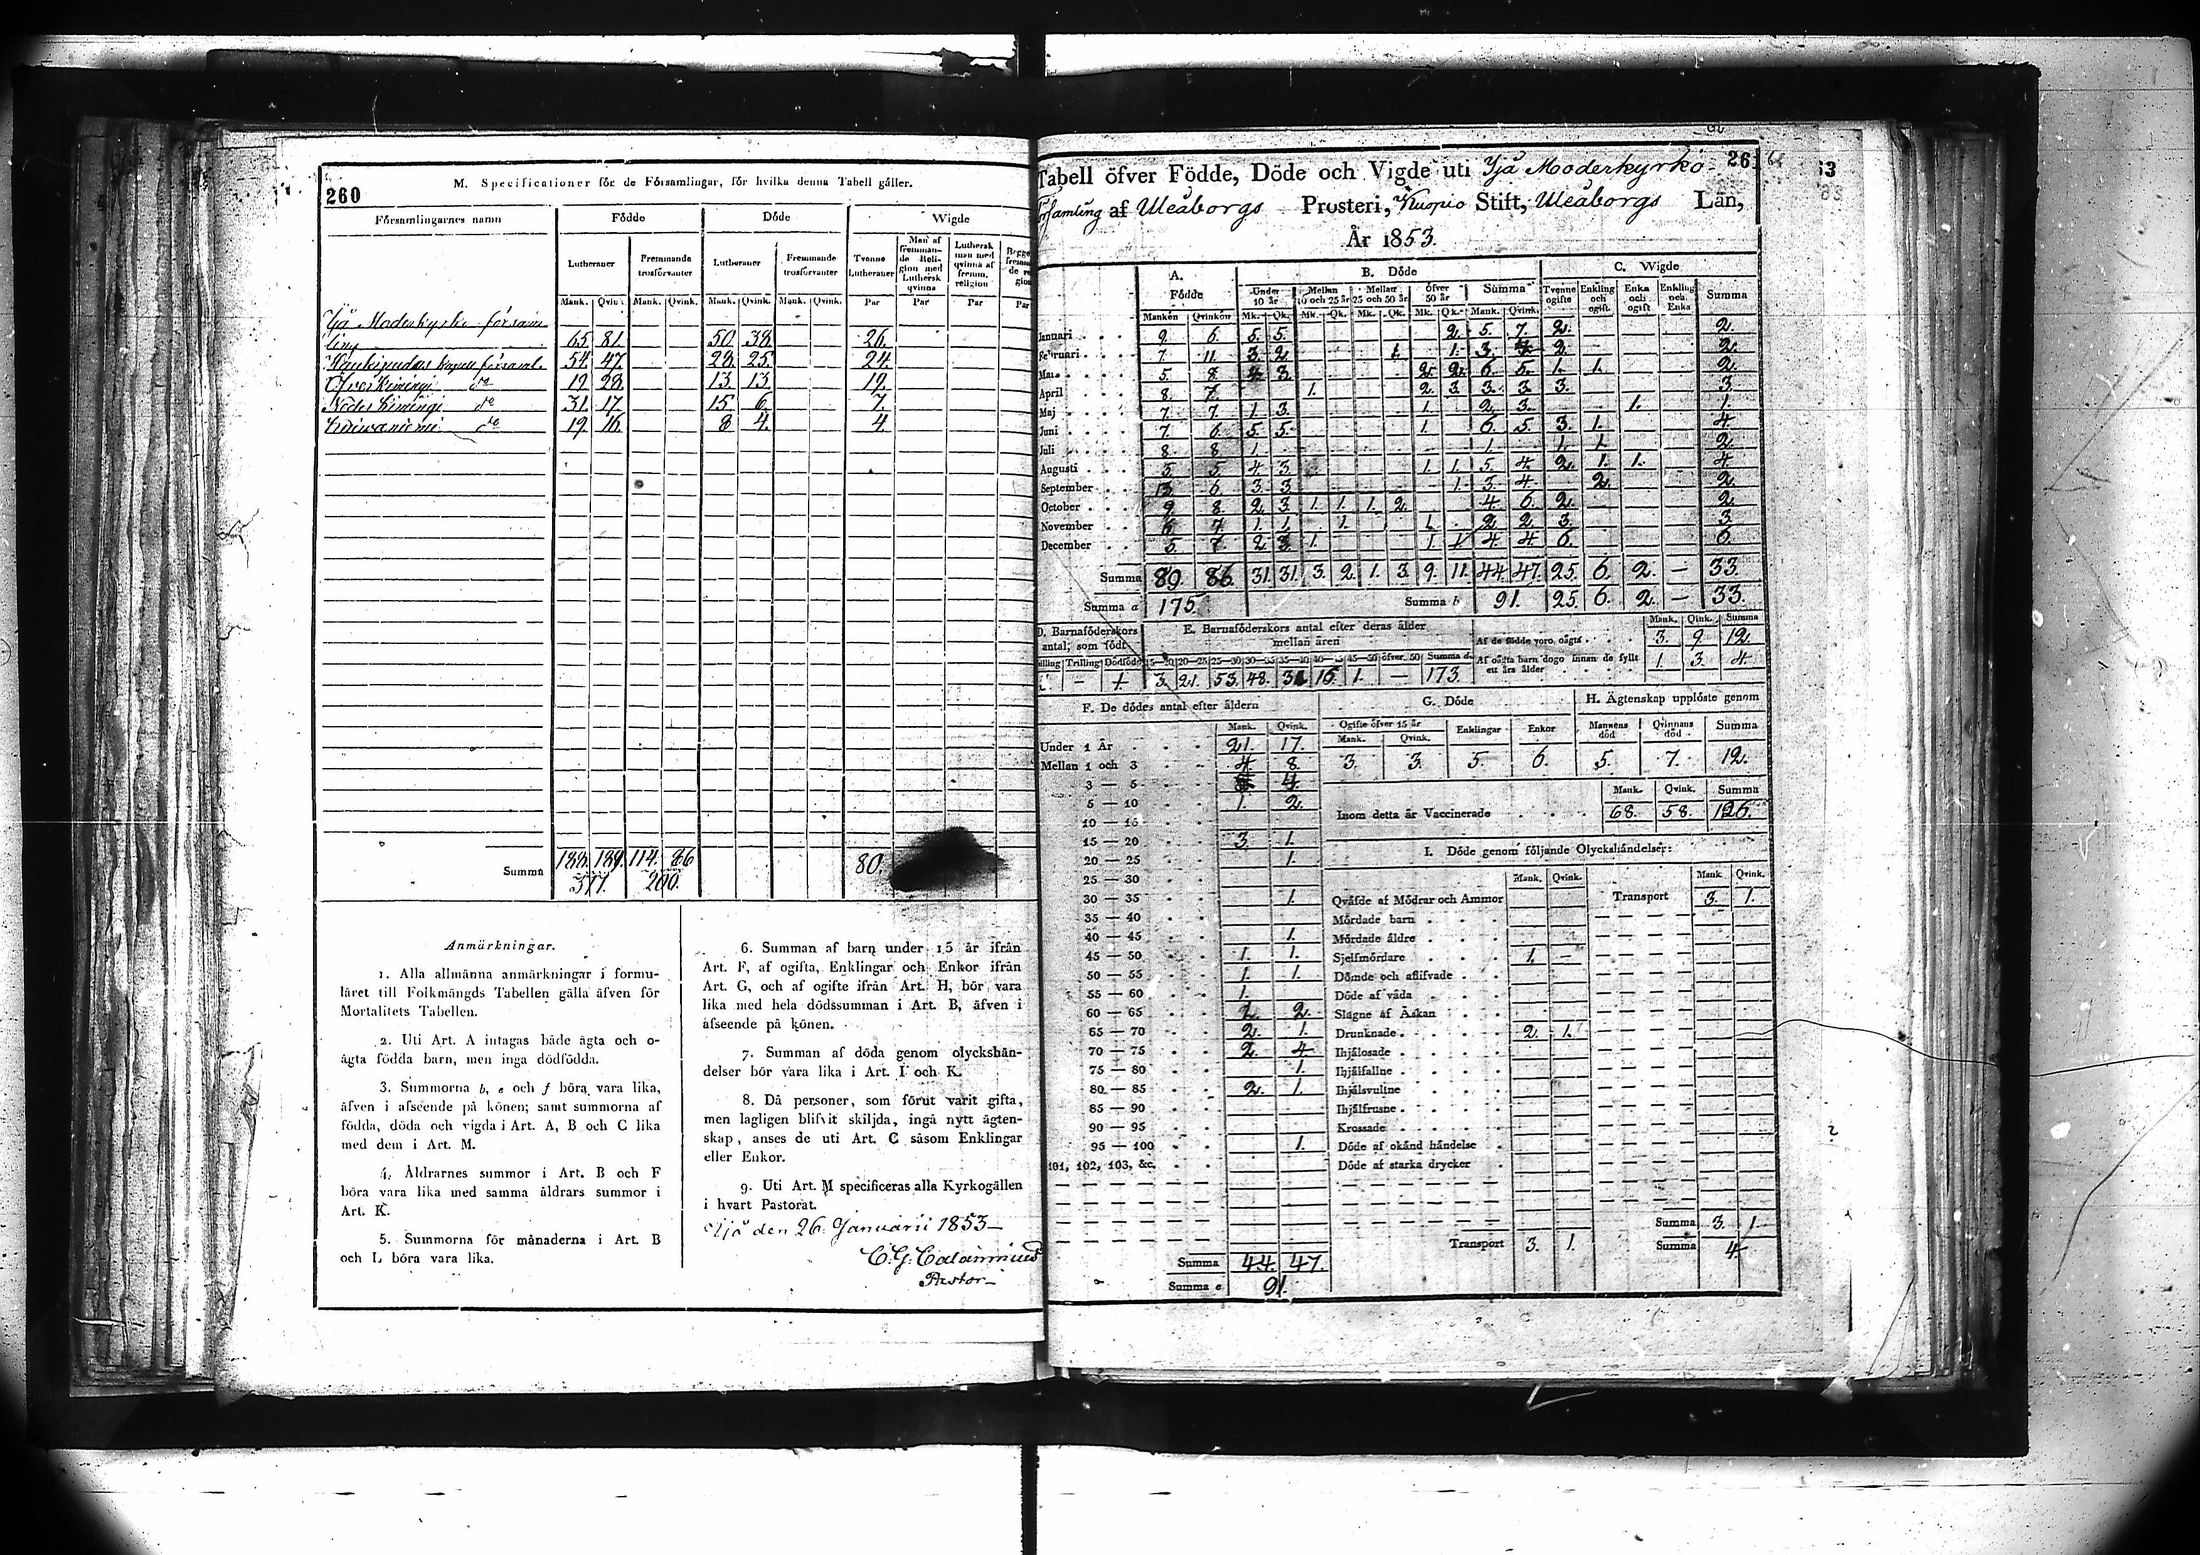 260
M. Specificationer för de Församlingar, för hvilka denna Tabell gäller.
Församlingarnes namn Födde Döde Wigde
Lutheraner Fremmande trosförvanter Lutheraner Fremmande trosförvanter Tvenne Lutheraner Man af fremmande Religion med Luthersk qvinna Luthersk man med qvinna af fremm. religion
Mank. Qvink. Mank. Qvink. Mank. Qvink. Mank. Qvink. Par Par Par Par
Ijå Moderkyrko försam
ling 65 81. 50 38. 26.
Haukipudas kapell församl. 54. 47. 28. 25. 24.
Öfverkimingi do 19 28. 13 13. 19.
Neder kimingi do 31. 17. 15. 6. 7.
Kuivaniemi do 19 16. 8 4. 4.
Summa 188. 189. 114. 86 80.
377. 200.
Anmärkningar.
1. Alla allmänna anmärkningar i formu-
läret till Folkmängds Tabellen gälla äfven för
Mortalitets Tabellen.
2. Uti Art. A intagas både ägta och o-
ägta födda barn, men inga dödfödda.
3. Summorna b, e och f böra vara lika,
äfven i afseende på könen; samt summorna af
födda, döda och vigda i Art. A, B och C lika
med dem i Art. M.
4. Åldrarnes summor i Art. B och F
böra vara lika med samma åldrars summor i
Art. K.
5. Summorna för månaderna i Art. B
och L böra vara lika.
6. Summan af barn under 15 år ifrån
Art. F, af ogifta, Enklingar och Enkor ifrån
Art. G, och af ogifte ifrån Art. H, bör vara
lika med hela dödssumman i Art. B, äfven i
afseende på könen.
7. Summan af döda genom olyckshän-
delser bör vara lika i Art. I och K.
8. Då personer, som förut varit gifta,
men lagligen blifvit skiljda, ingå nytt ägten-
skap, anses de uti Art. C såsom Enklingar
eller Enkor.
9. Uti Art. M specificeras alla Kyrkogällen
i hvart Pastorat.
Ijå den 26. Januarii 1853
C. G. Calamnius
Pastor
261
63
Tabell öfver Födde, Döde och Vigde uti Ijå Moderkyrko-
församling af Uleåborgs Prosteri, Kuopio Stift, Uleåborgs Län,
År 1853.
A. Födde B. Döde C. Wigde
Under 10 år Mellan 10 och 25 år Mellan 25 och 50 år öfver 50 år Summa Tvenne ogifte Enkling och ogift. Enka och ogift Enkling och Enka Summa
Mankön Qvinkön Mk. Qk. Mk. Qk. Mk. Qk. Mk. Qk. Mank. Qvink.
Januari 9. 6. 5. 5. 2. 5. 7. 2. 2.
Februari 7. 11. 3. 2. 1. 1. 3. 2. 2.
Mars 5. 8. 4 3. 2. 2. 6. 5. 1. 1. 2.
April 8. 7. 1. 2. 3. 3. 3. 3. 3.
Maj 7. 7. 1. 3. 1. 2. 3. 1. 1.
Juni 7. 6. 5. 5. 1. 6. 5. 3. 1. 4.
Juli 8. 8. 1. 1. 1. 1. 2.
Augusti 5 4. 3. 1. 1. 5. 4. 2. 1. 1. 4.
September 13. 6. 3. 3. 1. 3. 4. 2. 2.
October 9. 8. 2. 3. 1. 1. 1. 2. 4. 6. 2. 2.
November 6 7 1. 1. 1. 1. 2. 2. 3. 3.
December 5. 7. 2. 3. 1. 1. 1. 4. 4. 6. 6.
Summa 89. 86. 31. 31. 3. 2. 1. 3. 9. 11. 44. 47. 25. 6. 2. — 33.
Summa a 175. Summa b 91. 25. 6. 2. — 33.
D. Barnaföderskors antal, som födt
E. Barnaföderskors antal efter deras ålder mellan åren
Mank. Qink. Summa
Af de födde voro oägta 3. 9. 12.
Tvilling Trilling Dödfödd 15—20 20—25 25—30 30—35 35—40 40—45 45—50 öfver 50 Summa d.
Af oägta barn dogo innan de fyllt ett års ålder 1. 3. 4.
1. — 1. 3. 21. 53. 48. 31. 16. 1. — 173.
F. De dödes antal efter åldern
Mank. Qvink.
Under 1 År 21. 17.
Mellan 1 och 3 4. 8.
3 — 5 4.
5 — 10 1. 2.
10 — 15
15 — 20 3. 1.
20 — 25 1.
25 — 30
30 — 35 1.
35 — 40
40 — 45 1.
45 — 50 1. 1.
50 — 55 1. 1.
55 — 60 1.
60 — 65 2. 2.
65 — 70 2. 1.
70 — 75 2. 4.
75 — 80 1.
80 — 85 2. 1.
85 — 90
90 — 95
95 — 100 1.
101, 102, 103, &c.
Summa 44. 47.
Summa e 91.
G. Döde
Ogifte öfver 15 år Enklingar Enkor
Mank. Qvink.
3. 3. 5. 6.
H. Ägtenskap upplöste genom
Mannens död Qvinnans död Summa
5. 7. 12.
Mank. Qvink. Summa
Inom detta år Vaccinerade 68. 58. 126.
I. Döde genom följande Olyckshändelser:
Mank. Qvink. Mank. Qvink.
Qväfde af Mödrar och Ammor Transport 3. 1.
Mördade barn
Mördade äldre
Sjelfmördare 1. —
Dömde och aflifvade
Döde af våda
Slagne af Åskan
Drunknade 2. 1.
Ihjälosade
Ihjälfallne
Ihjälsvultne
Ihjälfrusne
Krossade
Döde af okänd händelse
Döde af starka drycker
Summa 3. 1.
Transport 3. 1. Summa 4.